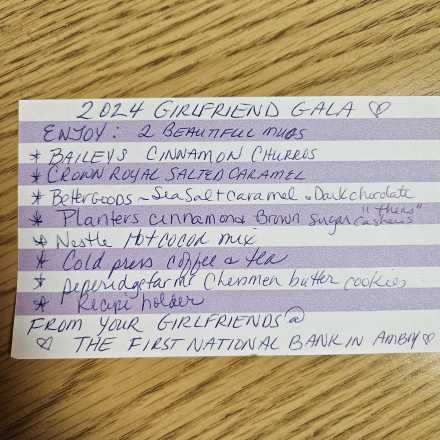 2024 GIRLFRIEND GALA ♡
ENJOY: 2 BEAUTIFUL MUGS
* BAILEYS CINNAMON CHURROS
* CROWN ROYAL SALTED CARAMEL
* BetterGoods ~ Sea Salt Caramel & Dark chocolate
* Planters cinnamon & Brown Sugar cashews
* Nestle Hot cocoa mix
* Cold press coffee & tea
* peperidge farms Chessmen butter cookies
* Recipe holder
FROM YOUR GIRLFRIENDS @
♡ THE FIRST NATIONAL BANK IN AMBOY ♡